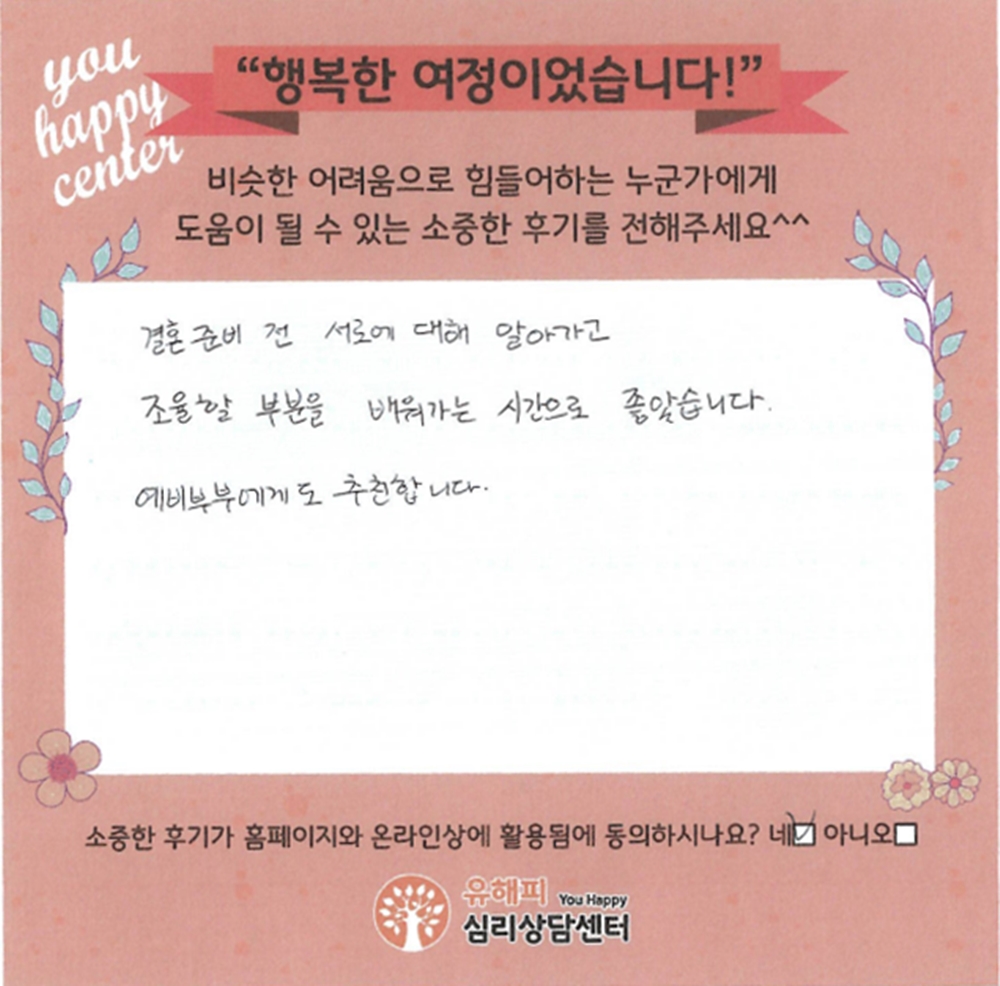 you
happy
center
“행복한 여정이었습니다!”
비슷한 어려움으로 힘들어하는 누군가에게
도움이 될 수 있는 소중한 후기를 전해주세요^^
결혼 준비 전 서로에 대해 알아가고
조율할 부분을 배워가는 시간으로 좋았습니다.
예비부부에게도 추천합니다.
소중한 후기가 홈페이지와 온라인상에 활용됨에 동의하시나요? 네☑ 아니오☐
유해피 You Happy
심리상담센터